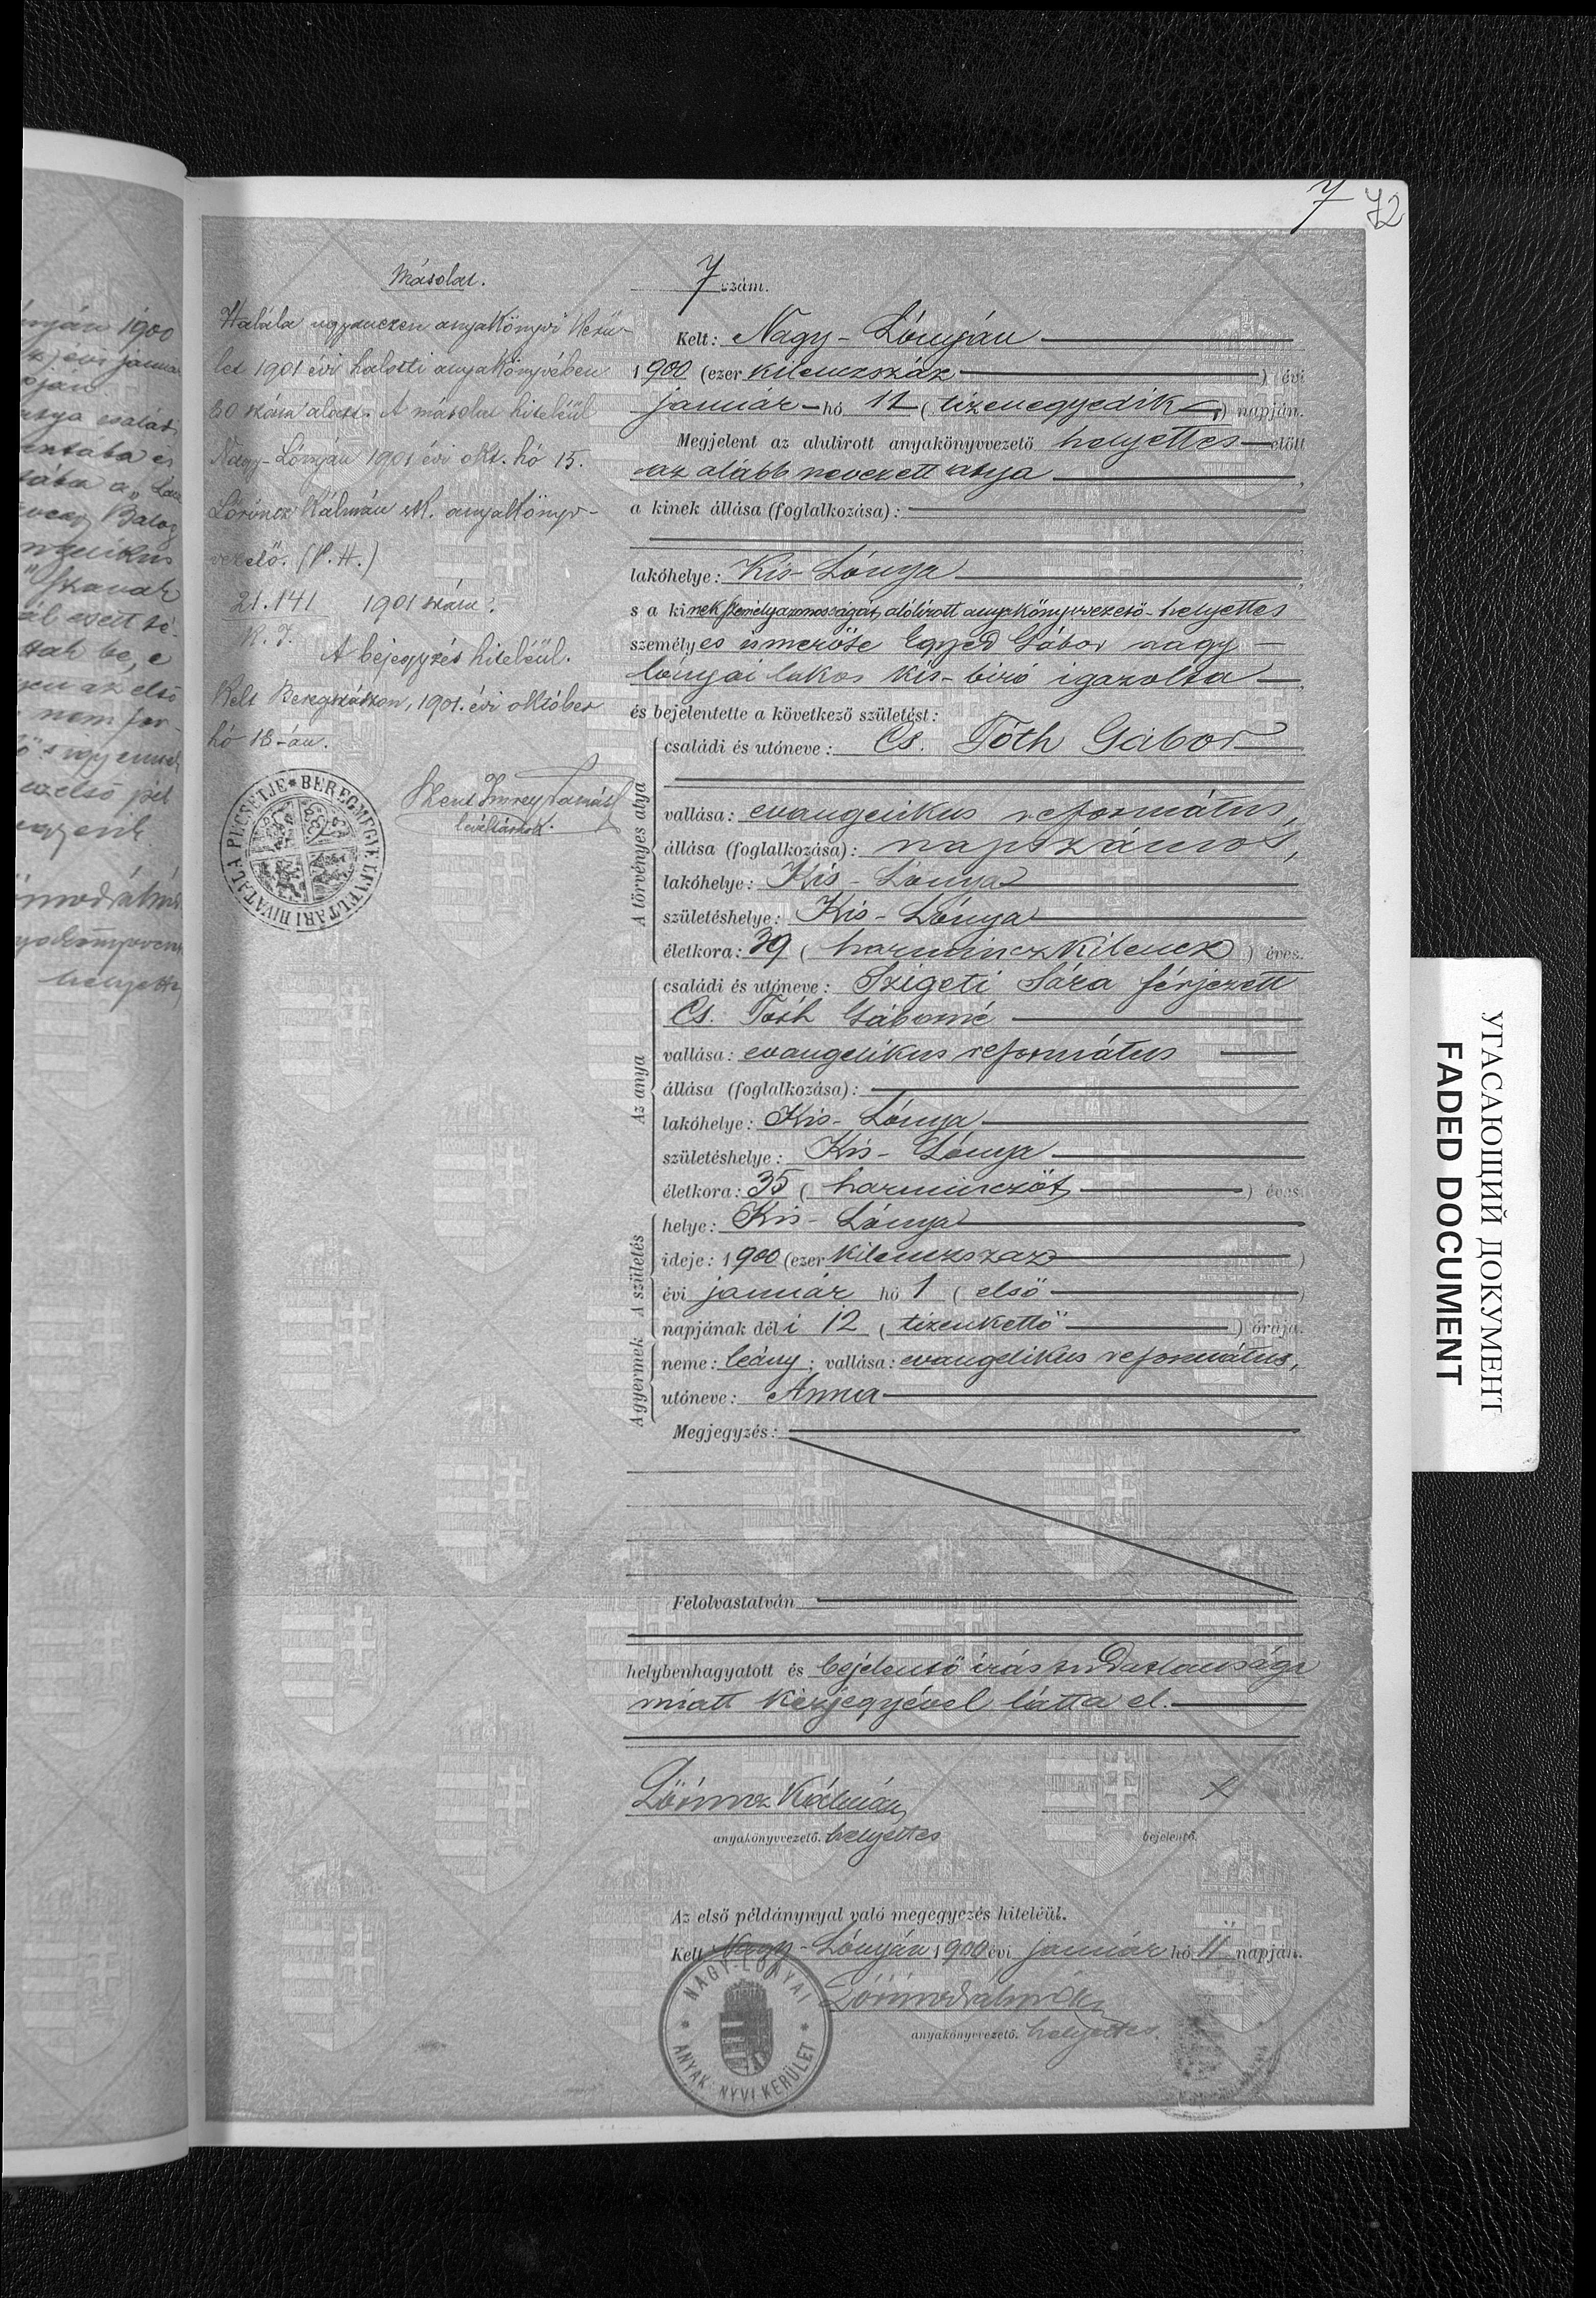 7 72
Másolat.
Halála ugyanezen anyakönyvi kerü-
let 1901 évi halotti anyakönyvében
30 szám alatt. A másolat hiteléül
Nagy-Lónyán 1901 évi okt. hó 15.
Lőrincz Kálmán sk. anyakönyv-
vezető. (P. H.)
21.141 1901 szám.
K. I.
A bejegyzés hiteléül.
Kelt Beregszászon, 1901. évi október
hó 18-án.
Szent Imrey Tamás
levéltárnok.
BEREGMEGYE LEVÉLTÁRI HIVATALA PECSÉTJE
7 szám.
Kelt: Nagy-Lónyán
1900 (ezer kilenczszáz) évi
január hó 11 (tizenegyedik) napján.
Megjelent az alulirott anyakönyvvezető helyettes előtt
az alább nevezett atya,
a kinek állása (foglalkozása):
lakóhelye: Kis-Lónya
s a kinek személyazonosságát, alólirott anyakönyvvezető-helyettes
személyes ismerőse Egyed Gábor nagy-
lónyai lakos kis-biró igazolta,
és bejelentette a következő születést:
A törvényes atya
családi és utóneve: Cs. Tóth Gábor
vallása: evangelikus református,
állása (foglalkozása): napszámos,
lakóhelye: Kis-Lónya
születéshelye: Kis-Lónya
életkora: 39 (harminczkilencz) éves.
Az anya
családi és utóneve: Szigeti Sára férjezett
Cs. Tóth Gáborné
vallása: evangelikus református
állása (foglalkozása):
lakóhelye: Kis-Lónya
születéshelye: Kis-Lónya
életkora: 35 (harminczöt) éves.
A születés
helye: Kis-Lónya
ideje: 1900 (ezer kilenczszáz)
évi január hó 1 (első)
napjának déli 12 (tizenkettő) órája.
A gyermek
neme: leány; vallása: evangelikus református,
utóneve: Anna
Megjegyzés:
Felolvastatván
helybenhagyatott és bejelentő irástudatlansága
miatt kézjegyével látta el.
Lőrincz Kálmán x
anyakönyvvezető. helyettes bejelentő.
Az első példánynyal való megegyezés hiteléül.
Kelt Nagy-Lónyán 1900 évi január hó 11 napján.
Lőrincz Kálmán
anyakönyvvezető. helyettes.
NAGY-LÓNYAI ANYAK NYVI KERÜLET
УГАСАЮЩИЙ ДОКУМЕНТ
FADED DOCUMENT